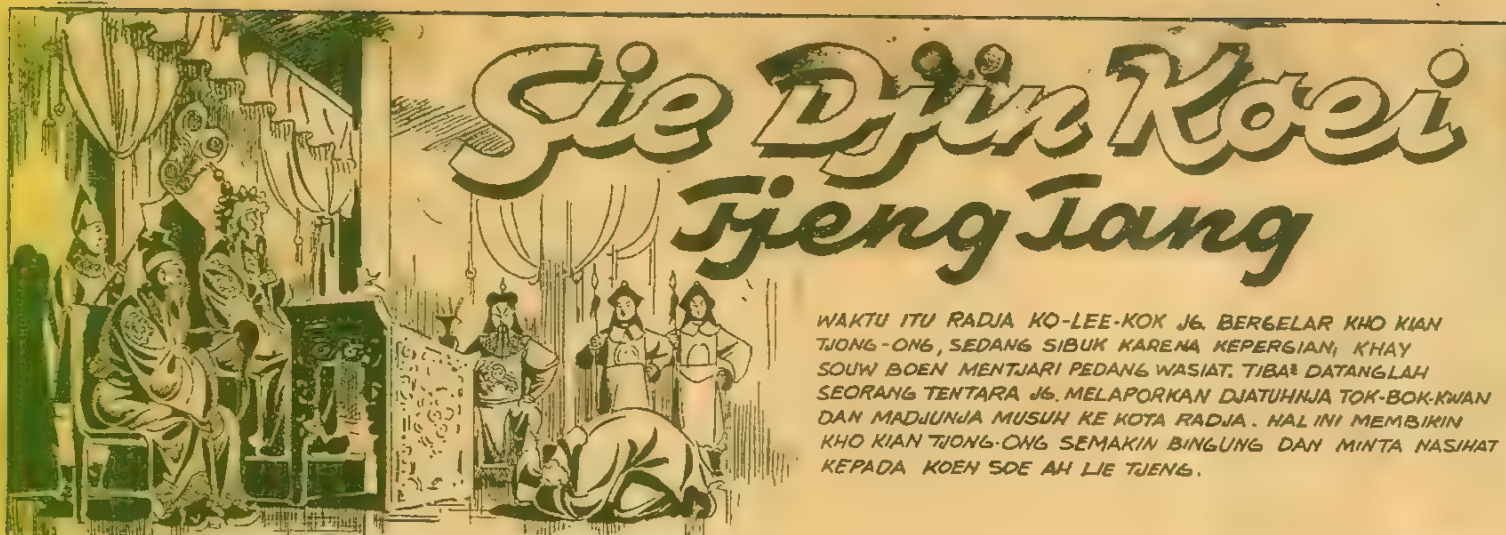 Sie Djin Koei
Tjeng Tang
WAKTU ITU RADJA KO-LEE-KOK JG. BERGELAR KHO KIAN
TJONG-ONG, SEDANG SIBUK KARENA KEPERGIAN, KHAY
SOUW BOEN MENTJARI PEDANG WASIAT. TIBA² DATANGLAH
SEORANG TENTARA JG. MELAPORKAN DJATUHNJA TOK-BOK-KWAN
DAN MADJUNJA MUSUH KE KOTA RADJA. HAL INI MEMBIKIN
KHO KIAN TJONG-ONG SEMAKIN BINGUNG DAN MINTA NASIHAT
KEPADA KOEN SOE AH LIE TJENG.